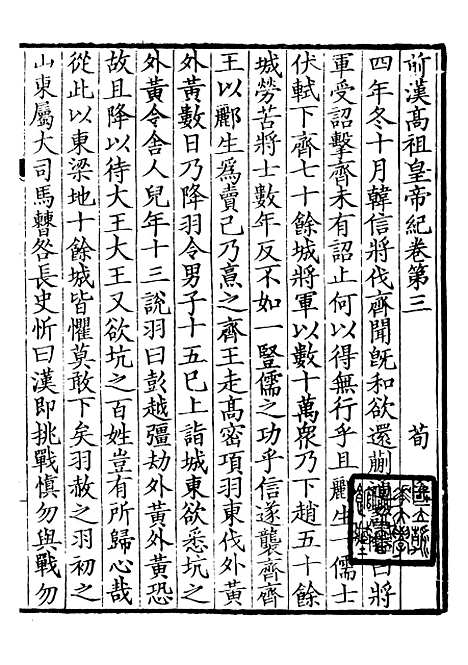 前漢髙祖皇帝紀卷第三　荀
四年冬十月韓信將伐齊聞既和欲還蒯曰將
軍受詔擊齊未有詔止何以得無行乎且酈生一儒士
伏軾下齊七十餘城將軍以數十萬衆乃下趙五十餘
城勞苦將士數年反不如一豎儒之功乎信遂襲齊齊
王以酈生爲賣己乃烹之齊王走髙密項羽東伐外黃
外黃數日乃降羽令男子十五已上詣城東欲悉坑之
外黃令舍人兒年十三說羽曰彭越彊劫外黃外黃恐
故且降以待大王大王又欲坑之百姓豈有所歸心哉
從此以東梁地十餘城皆懼莫敢下矣羽赦之羽初之
山東屬大司馬曹咎長史忻曰漢即挑戰慎勿與戰勿